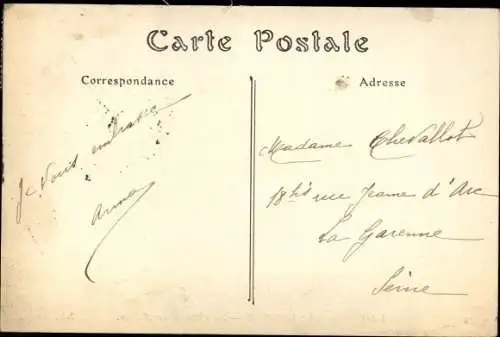 Carte Postale
Correspondance
Je vous embrasse
Anna
Adresse
Madame Chevallot
18 bis rue Jeanne d'Arc
La Garenne
Seine